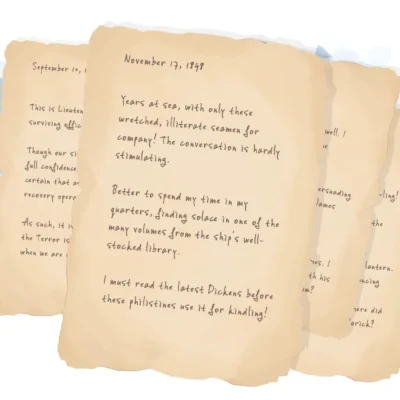 September 10, 1
This is Lieuten
surviving offic
Though our si
full confidence
certain that a
recovery opera
As such, it i
the Terror is
when we are
November 17, 1848
Years at sea, with only these
wretched, illiterate seamen for
company! The conversation is hardly
stimulating.
Better to spend my time in my
quarters, finding solace in one of the
many volumes from the ship's well-
stocked library.
I must read the latest Dickens before
these philistines use it for kindling!
well. I
ersuading
lames
mes, I
th his
m?
-ling!
the
lantern.
ncing
here did
erick?